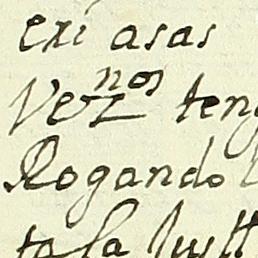 exi asas
Vez^nos ten
Rogando
ta la Justt